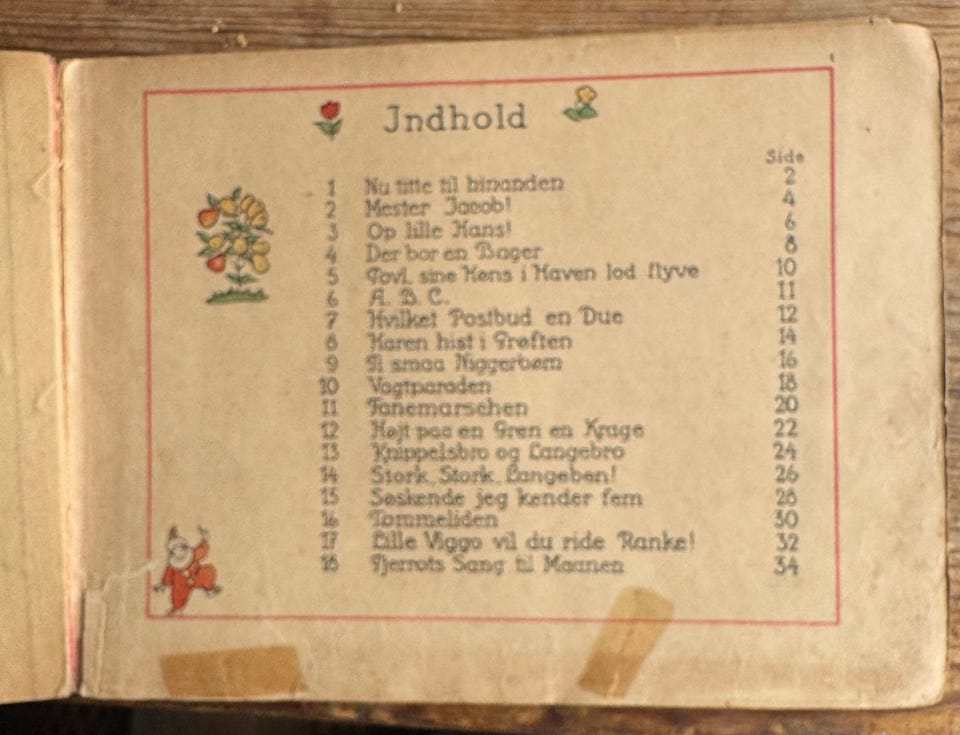 Jndhold
Side
1 Nu titte til hinanden 2
2 Mester Jacob! 4
3 Op lille Hans! 6
4 Der bor en Bager 8
5 Povl sine Høns i Haven lod flyve 10
6 A. B. C. 11
7 Hvilket Postbud en Due 12
8 Karen hist i Grøften 14
9 Ti smaa Niggerbørn 16
10 Vagtparaden 18
11 Fanemarschen 20
12 Højt paa en Gren en Krage 22
13 Knippelsbro og Langebro 24
14 Stork, Stork, Langeben! 26
15 Søskende jeg kender fem 28
16 Tommeliden 30
17 Lille Viggo vil du ride Ranke! 32
18 Pjerrots Sang til Maanen 34